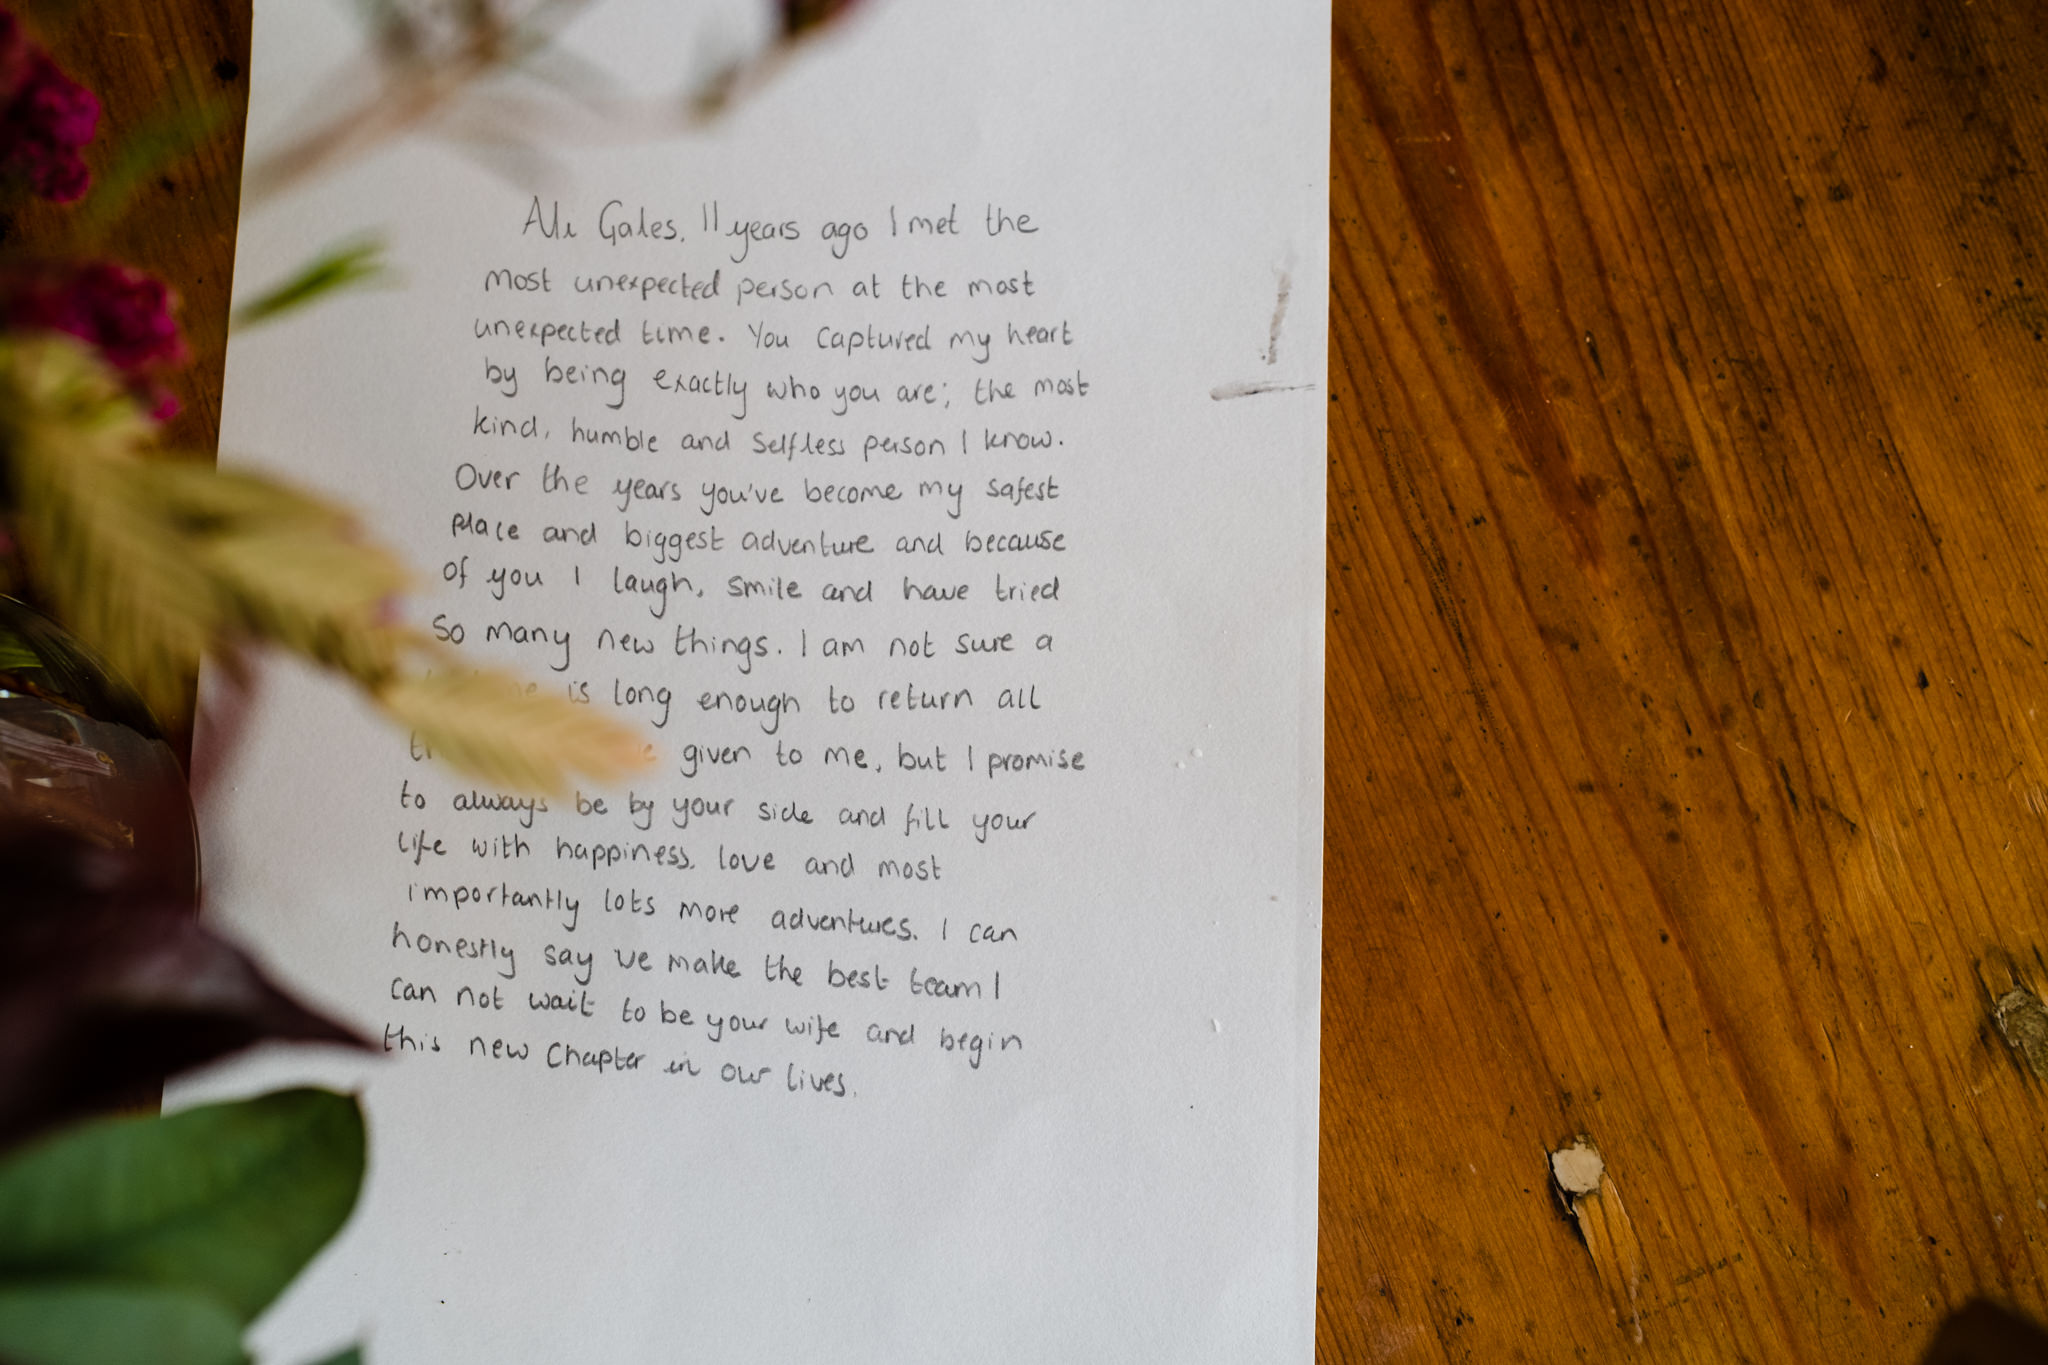 Ale Gales, 11 years ago I met the
most unexpected person at the most
unexpected time. You captured my heart
by being exactly who you are; the most
kind, humble and selfless person I know.
Over the years you've become my safest
place and biggest adventure and because
of you I laugh, smile and have tried
so many new things. I am not sure a
is long enough to return all
given to me, but I promise
to always be by your side and fill your
life with happiness, love and most
importantly lots more adventures. I can
honestly say we make the best team I
can not wait to be your wife and begin
this new chapter in our lives.